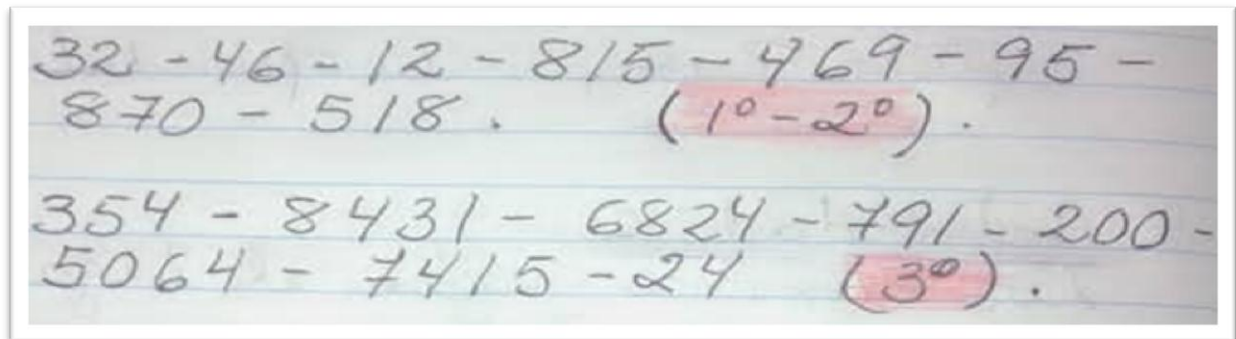 32 - 46 - 12 - 815 - 469 - 95 -
870 - 518. (1º - 2º).
354 - 8431 - 6824 - 791 - 200 -
5064 - 7415 - 24 (3º).